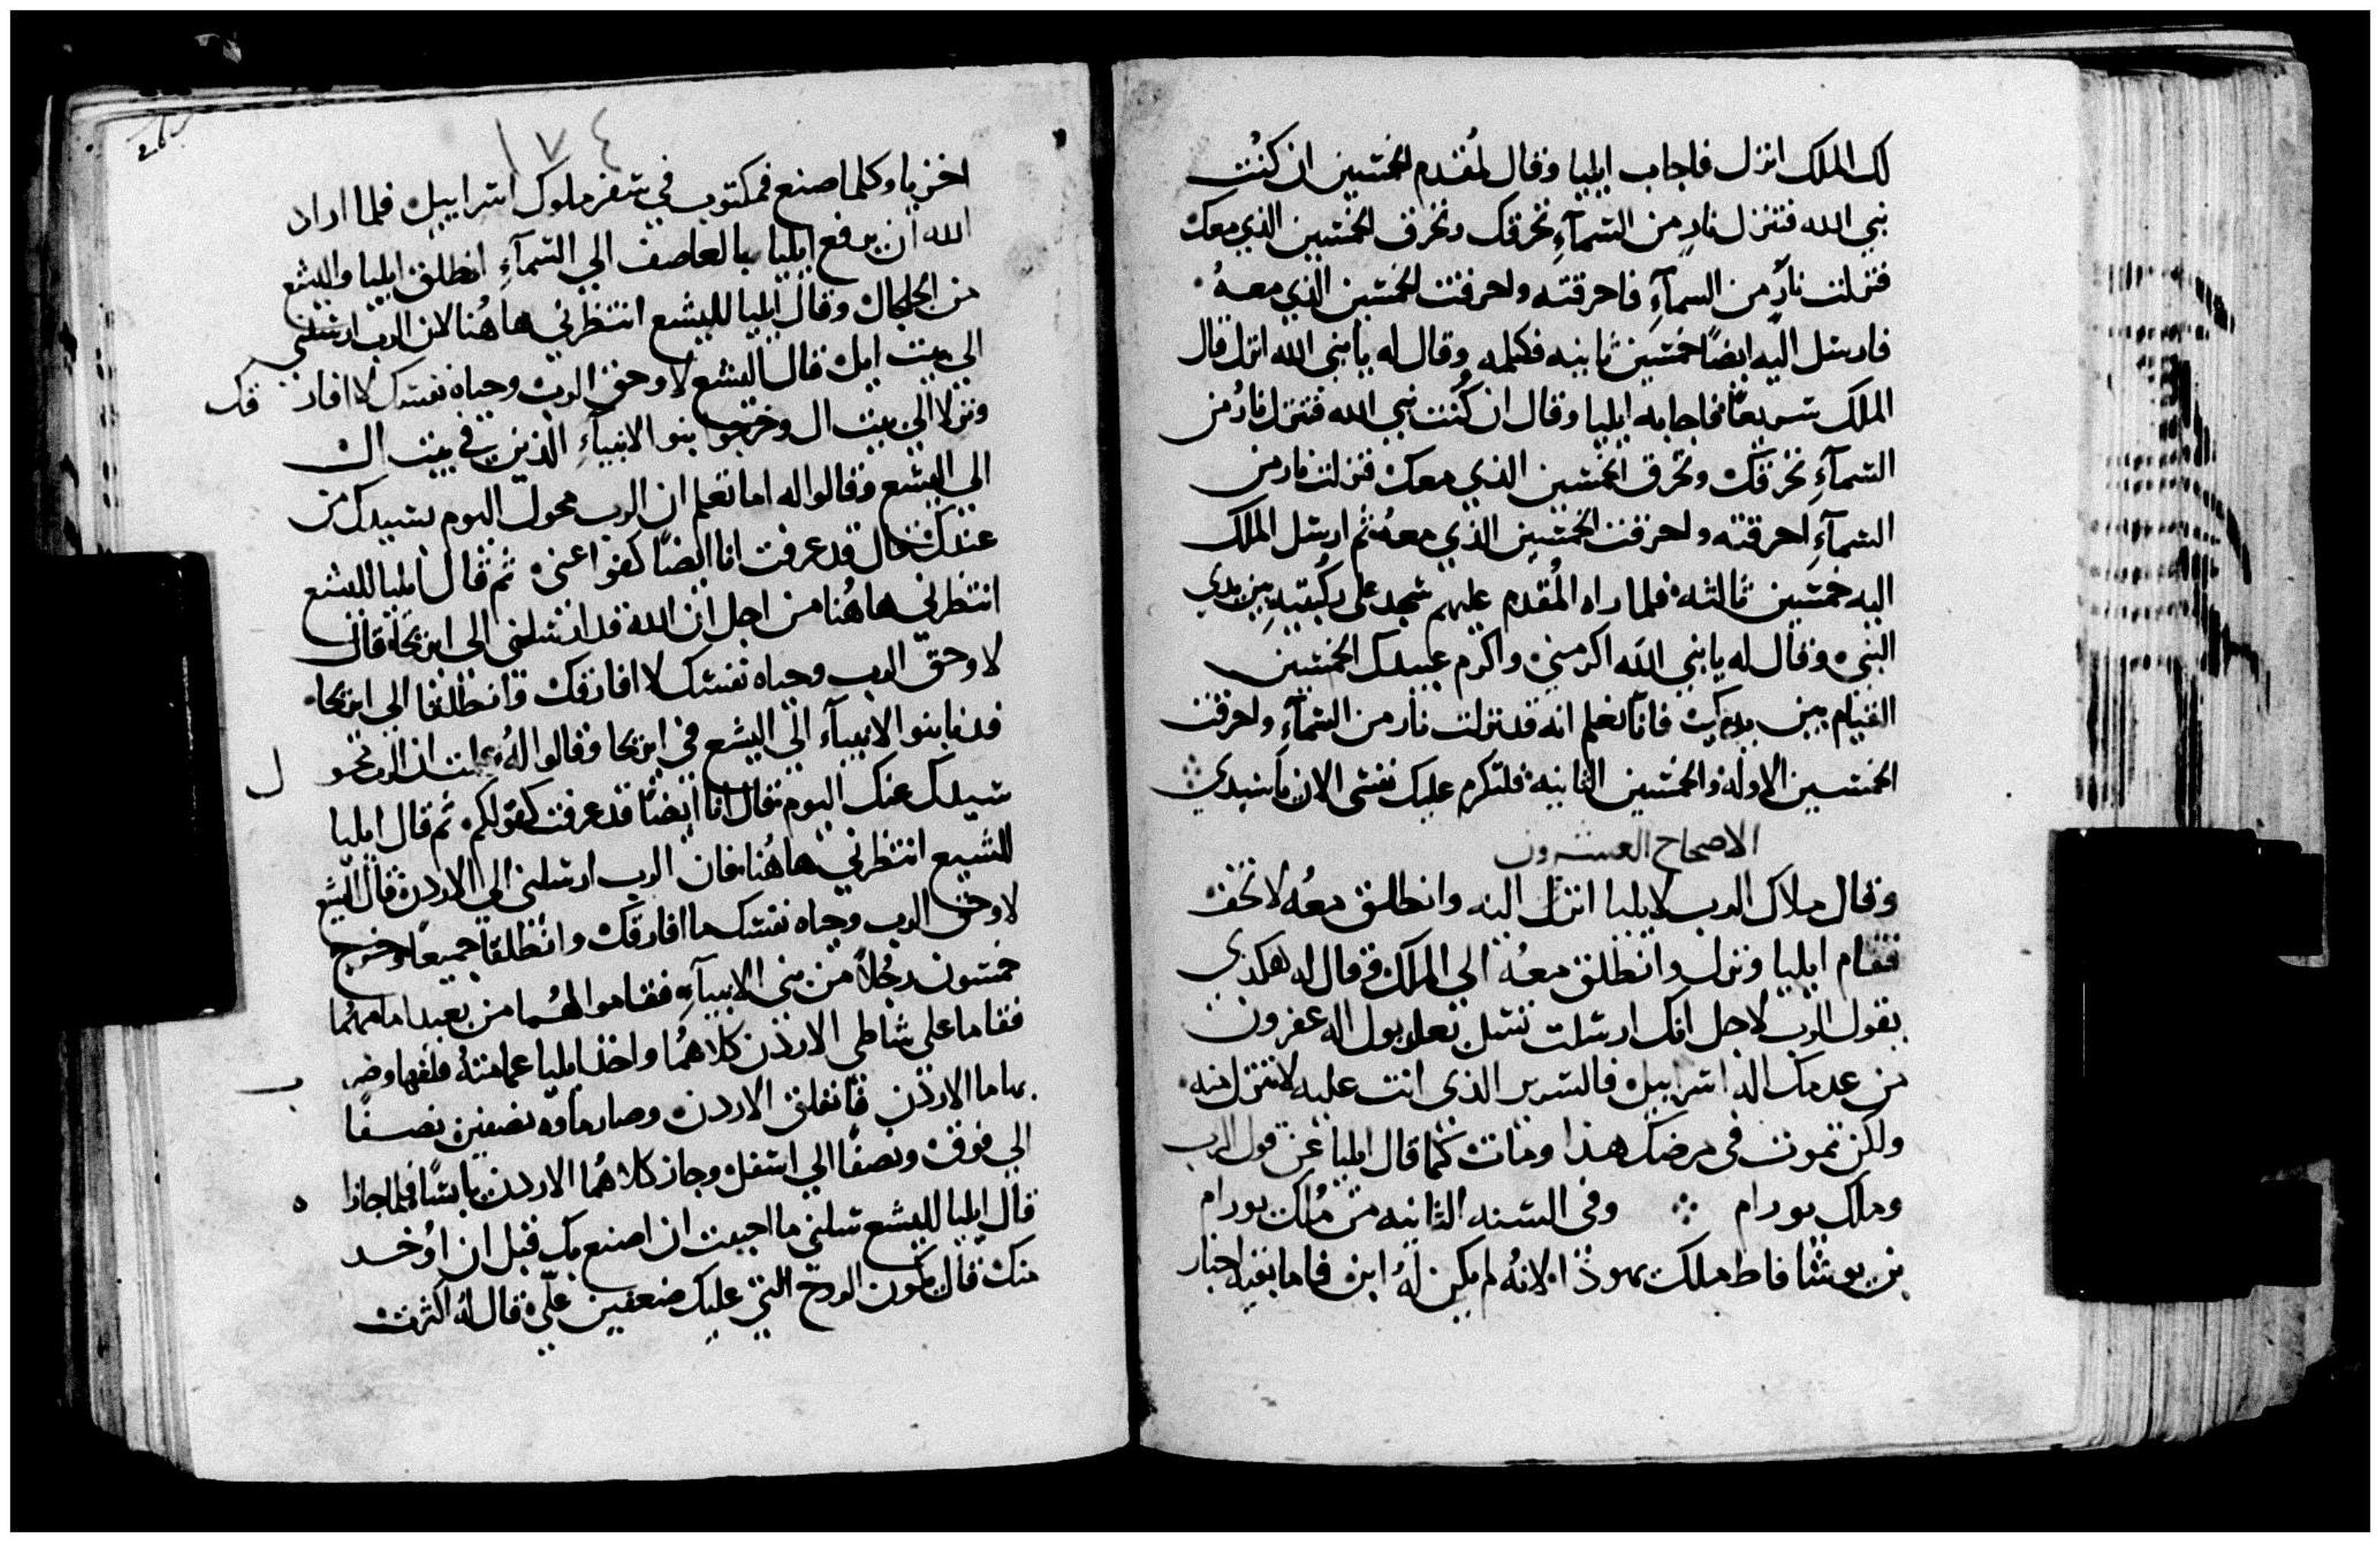 لك الملك انزل فاجاب ايليا وقال لمُقدم الخمسين ان كنُت
نبي الله فتنزل نارٍ من السمآءِ تحرقك وتحرق الخمسين الذي معك
فنزلت نارٍ من السمآءِ فاحرقته واحرقت الخمسين الذي معهُ
فارسل اليه ايضًا خمسين ثانيه فكلمه وقال له يا نبي الله انزل قال
الملك سريعًا فاجابه ايليا وقال ان كُنت نبي الله فتنزل نارُ من
السمآءِ تحرقك وتحرق الخمسين الذي معك فنزلت نار من
السمآءِ احرقته واحرقت الخمسين الذي معهُ ثم ارسل الملك
اليه خمسين ثالثه فلما راه المُقدم عليهم سجد على ركُبتيهِ بين يدي
النبي وقال له يا نبي الله اكرمني واكرم عبيدك الخمسين
القيام بين يديك فانا نعلم انه قد نزلت نار من السمآءِ واحرقت
الخمسين الاوله والخمسين الثانيه فلتكرم عليك نفسي الان يا سيدي
الاصحاح العشرون
وقال ملاك الرب لايليا انزل اليه وانطلق معُه لا تخف
فقام ايليا ونزل وانطلق معهُ الي الملك وقال له هكدي
يقول الرب لاجل انك ارسلت تسل بعل بول اله عفرون
من عدمك اله اسراييل فالسرير الذي انت عليه لا تنزل منه
ولكن تموت في مرضك هذا ومات كما قال ايليا عن قول الرب
وملك يورام وفي السنه الثانيه من مُلك يورام
بن يوشافاط ملك يهوذا لانهُ لم يكن لهُ ابن فاما بقية اخبار
اخزيا وكلما صنع فمكتوب في سفر ملوك اسراييل فلما اراد
الله ان يرفع ايليا بالعاصف الي السمآءِ انطلق ايليا واليشع
من الجلجال وقال ايليا لليشع انتظرني هاهُنا لان الرب ارسلني
الي بيت ايل قال اليشع لا وحق الرب وحياه نفسك لا افار قك
ونزلا الي بيت ال وخرجوا بنو الانبيآءِ الذين في بيت ال
الي اليشع وقالوا له اما تعلم ان الرب محول اليوم سيدك من
عندك قال قد عرفت انا ايضًا كفوا عني ثم قال ايليا لليشع
انتظرني هاهُنا من اجل ان الله قد ارسلني الي ايريحا قال
لا وحق الرب وحياه نفسك لا افارقك وانطلقا الي ايريحا
فدنا بنو الانبيآء الي اليشع في ايريحا وقالوا لهُ علمت ان الرب محو ل
سيدك عنك اليوم فقال انا ايضًا قد عرفت كقولكم ثم قال ايليا
للشيع انتظرني هاهُنا فان الرب ارسلني الي الاردن قال اليشع
لا وحق الرب وحياه نفسك ما افارقك وانطلقا جميعا وخرج
خمسون رجُلاً من بني الانبيآءِ فقاموا لهُما من بعيد امامهُما
فقاما على شاطي الاردن كلاهُما واخذ ايليا عمامتهُ فلفها وضر ب
بها ما الاردن فانفلق الاردن وصار ماوه نصفين نصفًا
الي فوق ونصفًا الي اسفل وجاز كلاهُما الاردن يابسًا فلما جازا ه
قال ايليا لليشع سلني ما احببت ان اصنع بك قبل ان اوُخد
منك قال تكون الروح التي عليك ضعفين عليّ قال لهُ اكثرت